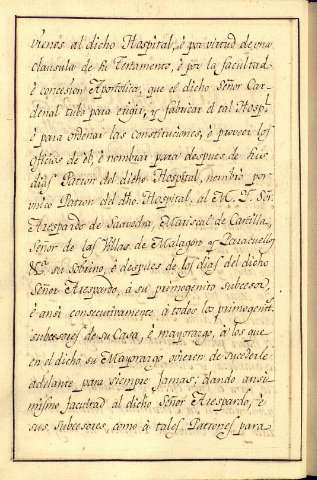 vienes al dicho Hospital, è por virtud de una
clausula de su Testamento, è por la facultad
è concesion Apostolica, que el dicho Señor Car-
denal tubo para erigir, y fabricar el tal Hospl.
è para ordenar las constituciones, è proveer los
oficios de èl, è nombrar para despues de sus
dias Patron del dicho Hospital, nombrò por
unico Patron del dho. Hospital, al M. Y. Sŏr.
Arespardo de Saavedra, Mariscal de Castilla,
Señor de las Villas de Malagon y Paracuellos
su Sobrino, è despues de los dias del dicho
Señor Arespardo, à su primogenito subcesor,
è ansi consecutivamente à todos los primogents.
subcesores de su Casa, è mayorazgo, à los que
en el dicho su Mayorazgo ovieren de sucederle
adelante para siempre Jamas, dando ansi
mismo facultad al dicho Señor Arespardo, è
sus subcesores, como à tales Patrones para